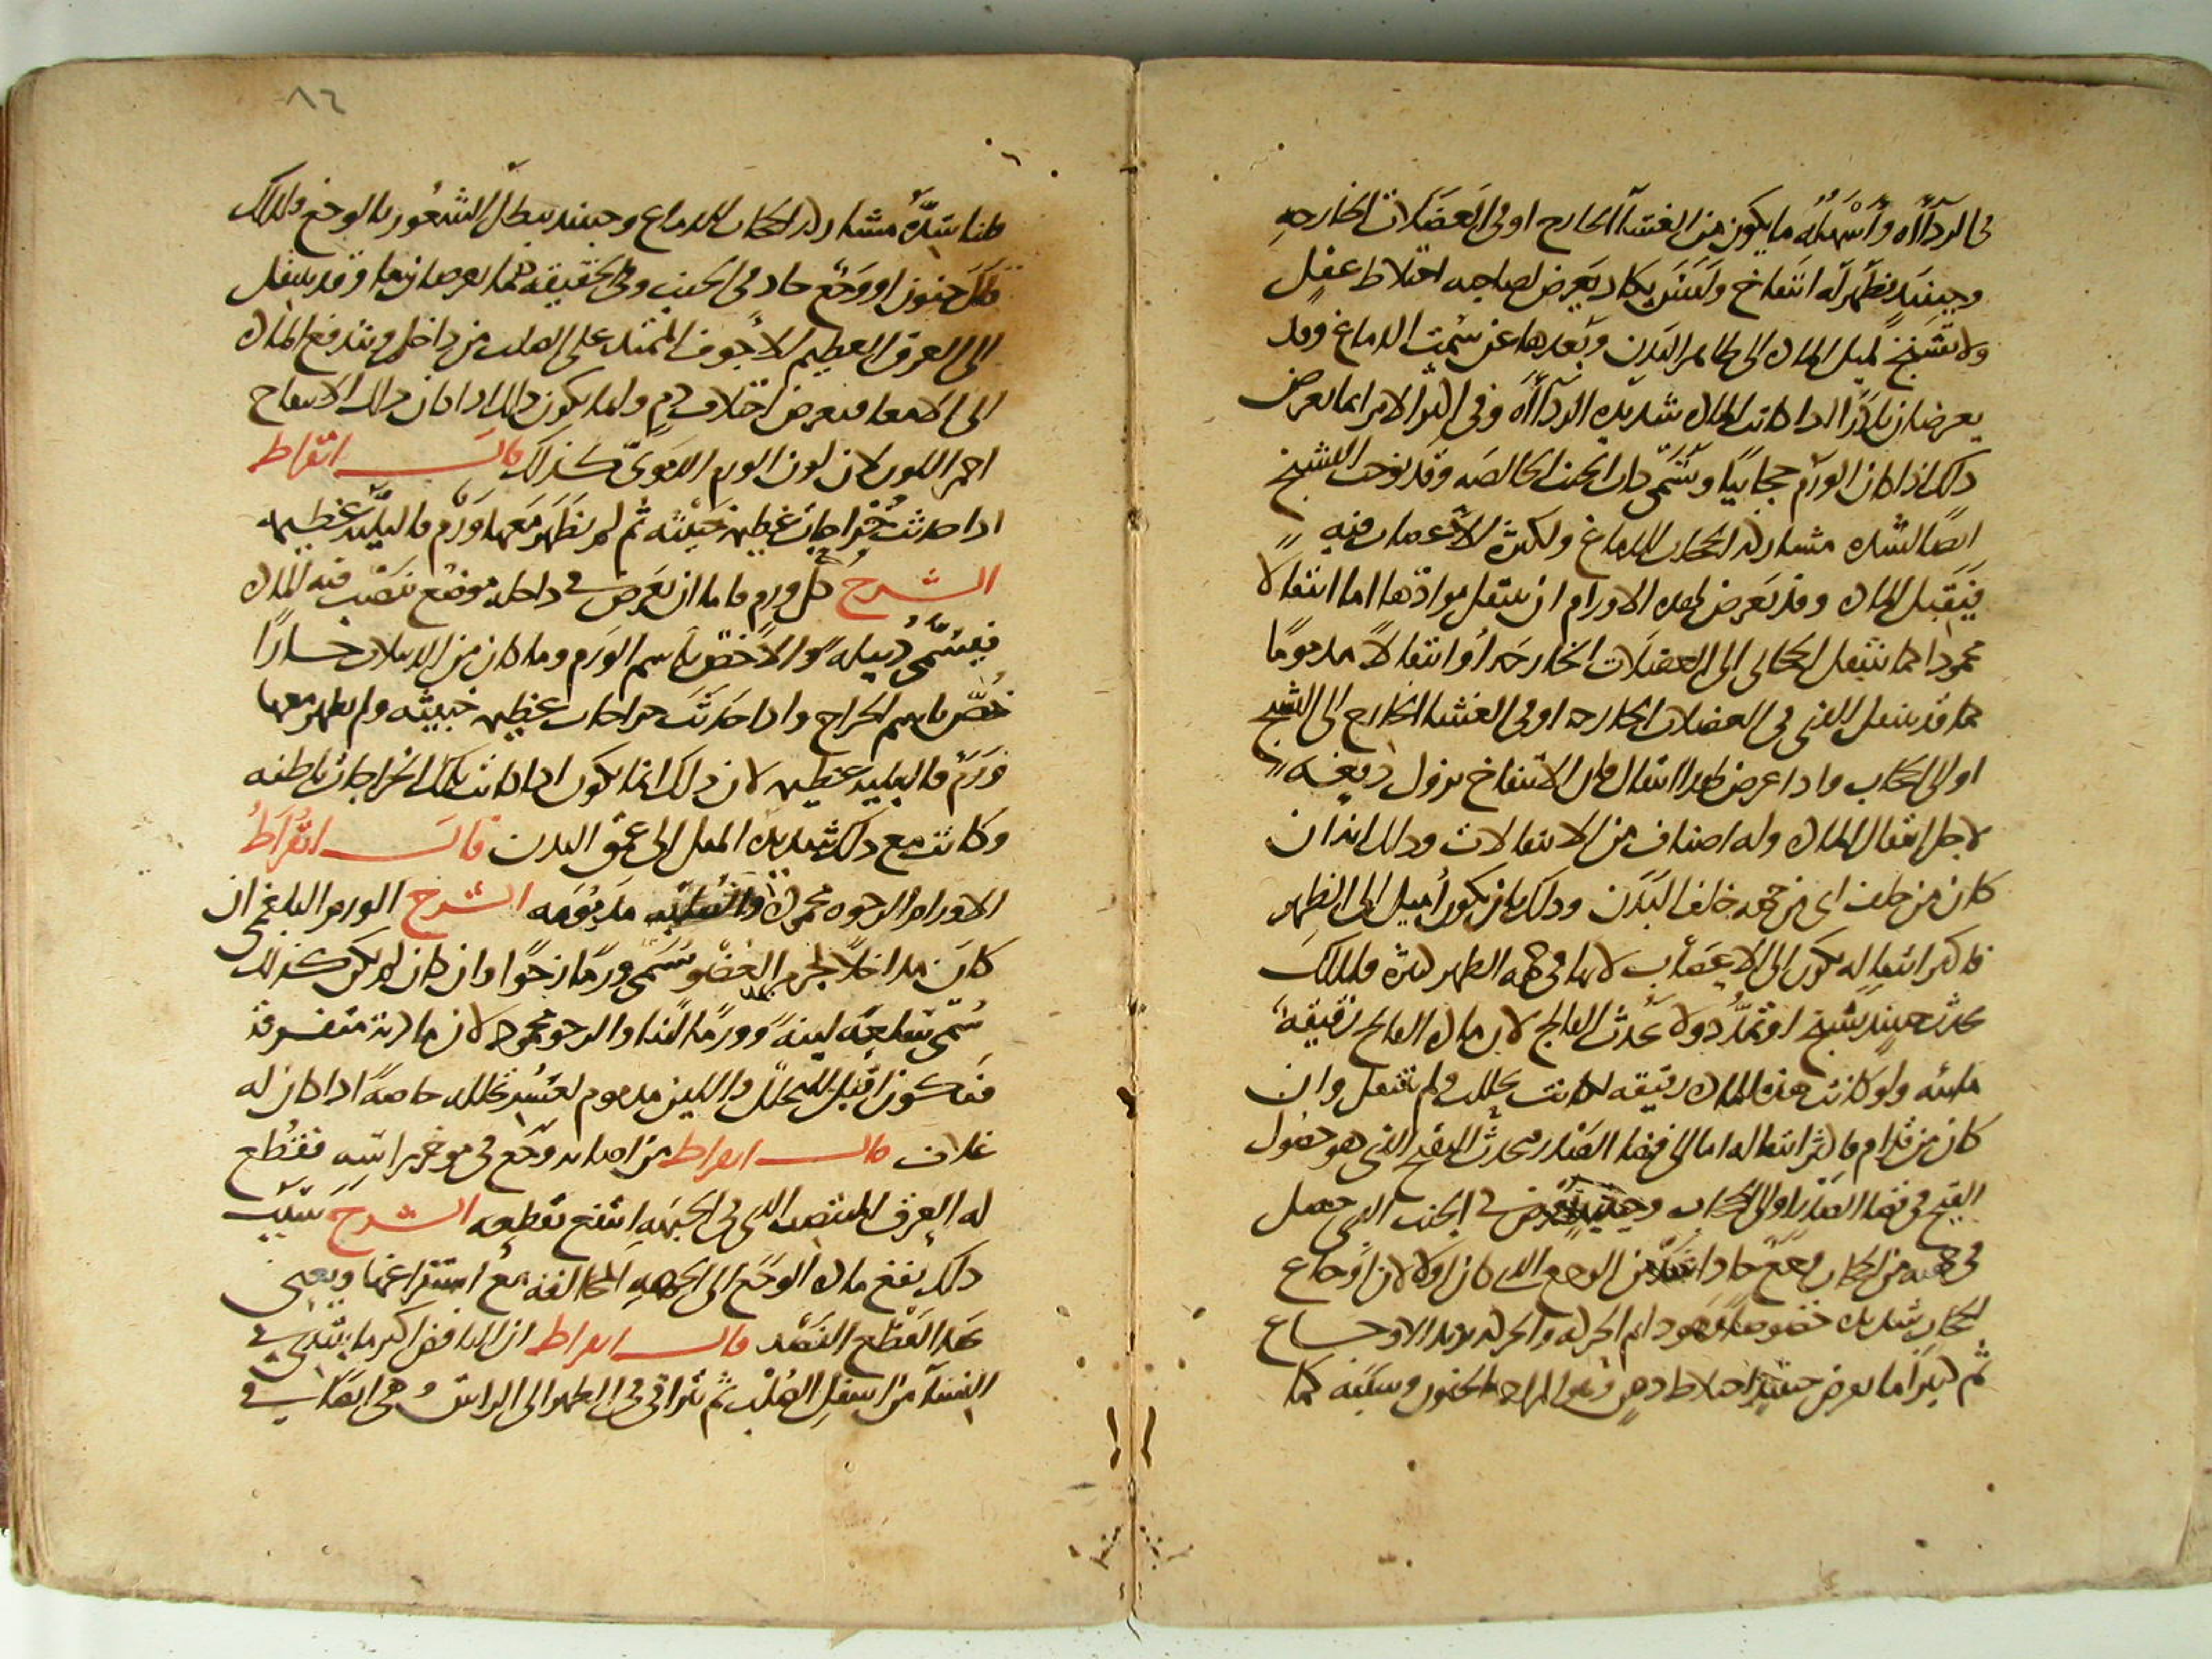 في الرداءة وأسهله ما يكون من الغشاء الخارج او في العضلات الخارجه
وحينيذ يظهر له انتفاخ وليس يكاد يعرض لصاحبه اختلاط عقل
ولا تشنج لميل الماده الى ظاهر البدن وبعدها عن سمت الدماغ وقد
يعرضان نادرا اذا كانت الماده شديده الرداءة وفي اكثر الامر انما يعرض
ذلك اذا كان الورم حجابيا ويسمى ذات الجنب الخالصه وقد يوجب التشنج
ايضا لشده مشاركه الحجاب للدماغ ولكثرة الاعصاب فيه
فيقبل الماده وقد يعرض لهذه الاورام ان ينتقل موادها اما انتقالا
محمودا كما ينتقل الحجابي الى العضلات الخارجه أو انتقالا مذموما
كما قد ينتقل الذي في العضلات الخارجه او في الغشا الخارج الى التشنج
او الى الحجاب واذا عرض لهذا انتقال فان الانتفاخ يزول دفعه
لاجل انتقال الماده وله اصناف من الانتقالات وذلك انه ان
كان من خلف اى من جهه خلف البدن وذلك بان يكون أميل الى الظهر
فاكثر انتقاله يكون الى الاعصاب لانها في جهه الظهر كثيرة فلذلك
يحدث حينيذ تشنج او تمدد ولا يحدث الفالج لان ماده الفالج رقيقة
مائيه ولو كانت هذه الماده رقيقه لكانت تحللت ولم تنتقل وان
كان من قدام فاكثر انتقاله اما الى فضا الصدر فيحدث التقيح الذي هو حصول
القيح في فضا الصدر او الى الحجاب وحينيذ يعرض في الجنب الذي حصل
في جهته من الحجاب وجع حاد اشد من الوجع الذي كان اولا لان اوجاع
الحجاب شديده خصوصا وهو دايم الحركه والحركه تزيد الاوجاع
ثم كثيرا ما يعرض حينيذ اختلاط ذهن الجنون وسببه كما
٨٢
قلنا شدة مشاركه الحجاب للدماغ وحينيذ يبطل الشعور بالوجع فلذلك
قال جنون او وجع حاد في الجنب وفي الحقيقه فهما يعرضان معا وقد ينتقل
الى العرق العظيم الأجوف الممتد على الصلب من داخل ويندفع الماده
الى الامعا فيعرض اختلاف دم وانما يكون ذلك اذا كان ذلك الانتفاخ
احمر اللون لان لون الورم الدموى كذلك قال ابقراط
اذا حدثت خراجات عظيمه خبيثه ثم لم يظهر معها ورم فالبليه عظيمه
الشرح كل ورم فاما ان يعرض في داخله موضع تنصب فيه الماده
فيسمى دبيله او لا فخص باسم الورم وما كان من الدبيلات حارا
خص باسم الخراج واذا حدثت خراجات عظيمه خبيثه ولم يظهر معها
ورم فالبليه عظيمه لان ذلك انما يكون اذا كانت تلك الخراجات باطنه
وكانت مع ذلك شديده الميل الى عمق البدن قال ابقراط
الاورام الرخوه محموده مذمومه الشرح الورم البلغمي ان
كان مداخلا لجرم العضو يسمى ورما رخوا وان كان لم يكن كذلك
سمى لينه وورما لينا والرخو محمود لان مادته متفرقة
فيكون اقبل للتحلل واللين مذموم لعسر تحلله خاصة اذا كان له
غلاف قال ابقراط من اصابه وجع في موخر راسه فقطع
له العرق المنتصب الذي في الجبهه انتفع بقطعه الشرح سبب
ذلك نفع ماده الوجع الى الجهه المخالفه مع استفراغها ويعني
بهذا القطع الفصد قال ابقراط ان النافض اكثر ما يبتدي في
النساء من اسفل الصلب ثم يتراقى في الظهر الى الراس وهي ايضا في